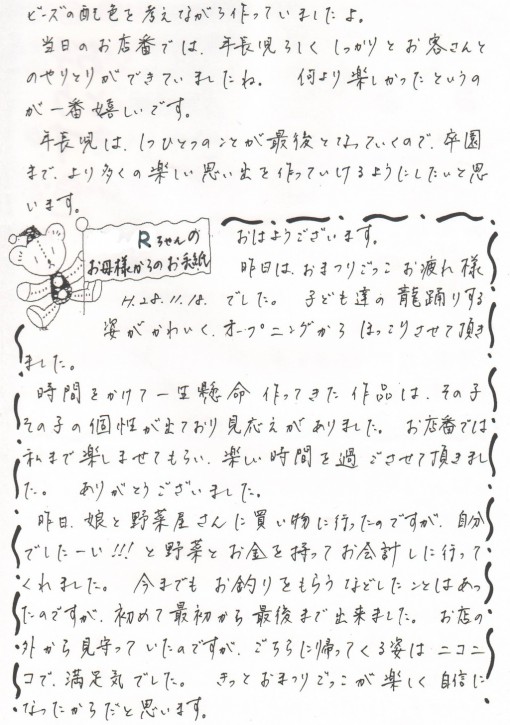 ビーズの配色を考えながら作っていましたよ。
当日のお店番では、年長児らしくしっかりとお客さんと
のやりとりができていましたね。 何より楽しかったというの
が一番嬉しいです。
年長児は、1つひとつのことが最後となっていくので、卒園
まで、より多くの楽しい思い出を作っていけるようにしたいと思
います。
Rちゃんの
お母様からのお手紙
H.28.11.18.
おはようございます。
昨日は、おまつりごっこ お疲れ様
でした。 子ども達の龍踊りする
姿がかわいく、オープニングから ほっこりさせて頂き
ました。
時間をかけて一生懸命 作ってきた作品は、その子
その子の個性が出ており見応えがありました。 お店番では
私まで楽しませてもらい、楽しい時間を過ごさせて頂きまし
た。 ありがとうございました。
昨日、娘と野菜屋さんに買い物に行ったのですが、自分
でしたーい!!!と野菜とお金を持ってお会計しに行って
くれました。 今までも お釣りをもらうなどしたことはあっ
たのですが、初めて最初から最後まで出来ました。 お店の
外から見守っていたのですが、こちらに帰ってくる姿はニコニ
コで、満足気でした。 きっとおまつりごっこが楽しく自信に
なったからだと思います。